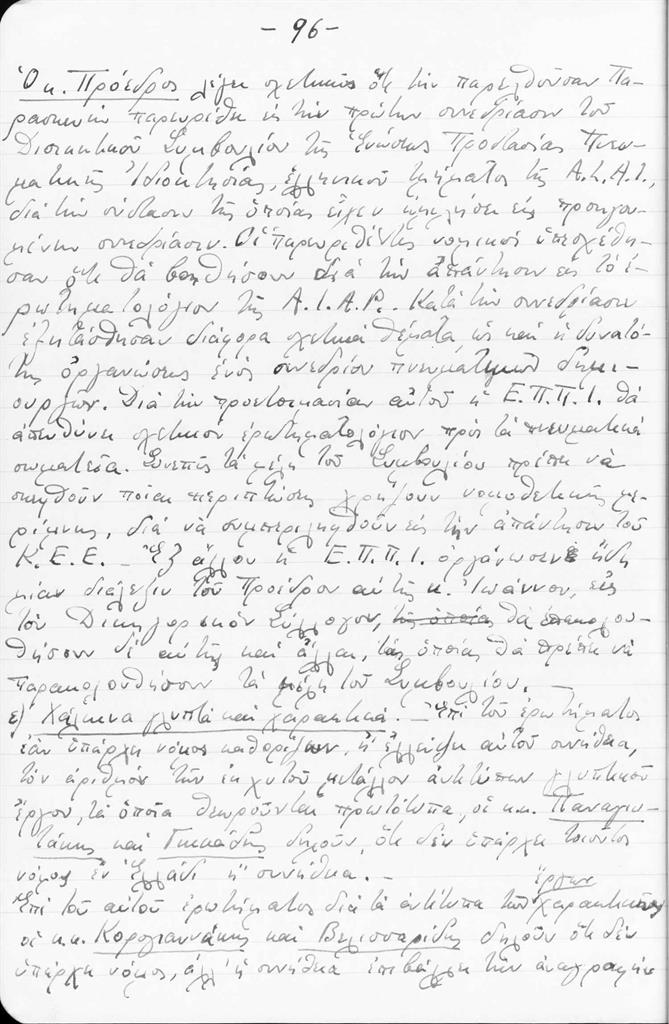 - 96 -
Ὁ κ. Πρόεδρος λέγει σχετικῶς ὅτι τὴν παρελθοῦσαν Πα-
ρασκευὴν παρευρέθη εἰς τὴν πρώτην συνεδρίασιν τοῦ
Διοικητικοῦ Συμβουλίου τῆς Ἑνώσεως Προστασίας Πνευ-
ματικῆς Ἰδιοκτησίας, ἑλληνικοῦ τμήματος τῆς A.L.A.I.,
διὰ τὴν σύστασιν τῆς ὁποίας εἶχεν ὁμιλήσει εἰς προηγου-
μένην συνεδρίασιν. Οἱ παρευρεθέντες νομικοὶ ὑπεσχέθη-
σαν ὅτι θὰ βοηθήσουν διὰ τὴν ἀπάντησιν εἰς τὸ ἐ-
ρωτηματολόγιον τῆς A.I.A.P.. Κατὰ τὴν συνεδρίασιν
ἐξητάσθησαν διάφορα σχετικὰ θέματα, ὡς καὶ ἡ δυνατό-
της ὀργανώσεως ἑνὸς συνεδρίου πνευματικῶν δημι-
ουργῶν. Διὰ τὴν προετοιμασίαν αὐτοῦ ἡ Ε.Π.Π.Ι. θὰ
ἀπευθύνει σχετικὸν ἐρωτηματολόγιον πρὸς τὰ πνευματικὰ
σωματεῖα. Συνεπῶς τὰ μέλη τοῦ Συμβουλίου πρέπει νὰ
σκεφθοῦν ποῖαι περιπτώσεις χρήζουν νομοθετικῆς με-
ρίμνης, διὰ νὰ συμπεριληφθοῦν εἰς τὴν ἀπάντησιν τοῦ
Κ.Ε.Ε. - Ἐξ ἄλλου ἡ Ε.Π.Π.Ι. ὀργάνωσεν ἤδη
μίαν διάλεξιν τοῦ Προέδρου αὐτῆς κ. Ἰωάννου, εἰς
τὸν Δικηγορικὸν Σύλλογον, τῆς ὁποίας θὰ ἐπακολου-
θήσουν δὲ αὐτῆς καὶ ἄλλαι, τὰς ὁποίας θὰ πρέπει νὰ
παρακολουθήσουν τὰ μέλη τοῦ Συμβουλίου. -
ε) Χάλκινα γλυπτὰ καὶ χαρακτικά. - Ἐπὶ τοῦ ἐρωτήματος
ἐὰν ὑπάρχει νόμος καθορίζων, ἢ ἐλλείψει αὐτοῦ συνήθεια,
τὸν ἀριθμὸν τῶν ἐκ χυτοῦ μετάλλου ἀντιτύπων γλυπτικοῦ
ἔργου, τὰ ὁποῖα θεωροῦνται πρωτότυπα, οἱ κ.κ. Παναγιω-
τάκης καὶ Γκικάδης δηλοῦν, ὅτι δὲν ὑπάρχει τοιοῦτος
νόμος ἐν Ἑλλάδι ἢ συνήθεια. -
Ἐπὶ τοῦ αὐτοῦ ἐρωτήματος διὰ τὰ ἀντίτυπα τῶν ἔργων χαρακτικῆς
οἱ κ.κ. Κορογιαννάκης καὶ Βελισσαρίδης δηλοῦν ὅτι δὲν
ὑπάρχει νόμος, ἀλλ' ἡ συνήθεια ἐπιβάλλει τὴν ἀναγραφὴν